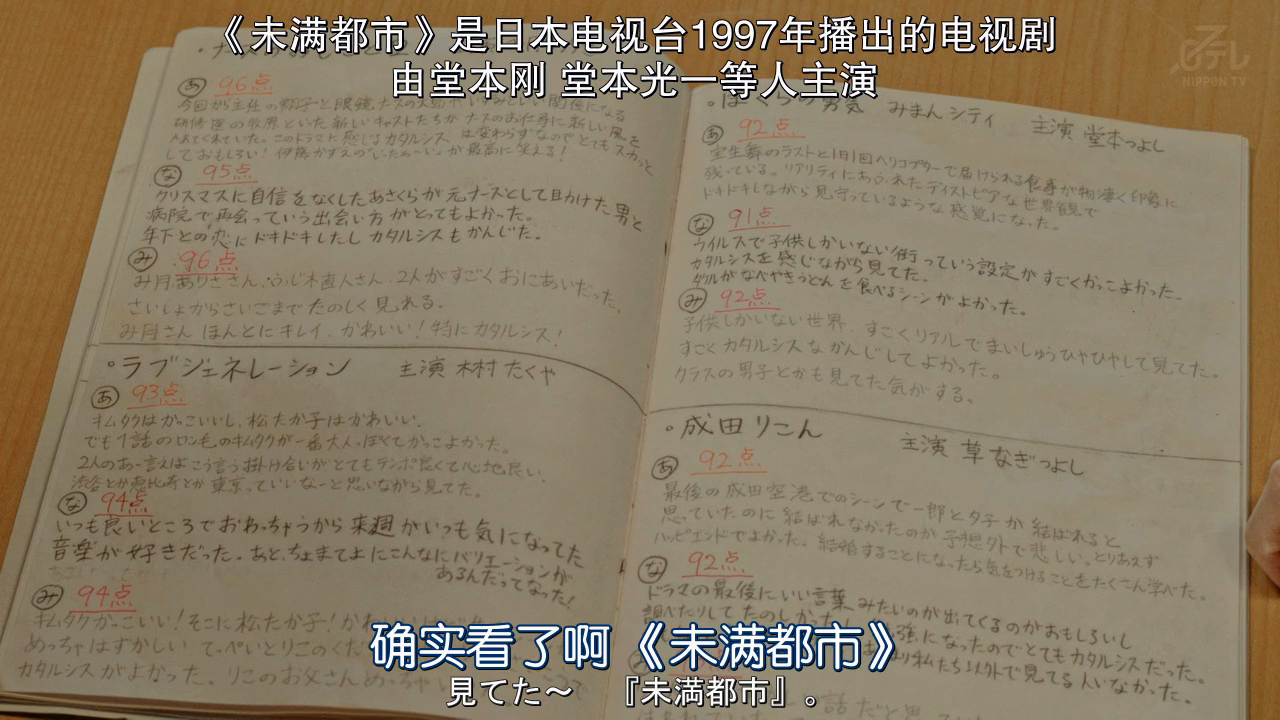 《未满都市》是日本电视台1997年播出的电视剧
由堂本刚 堂本光一等人主演
日テレ
NIPPON TV
あ 96点
しておもしろい!
な 95点
クリスマスに自信をなくしたあさくらが元ナースとして目かけた男と
病院で再会っていう出会い方がとってもよかった。
年下との恋にドキドキしたし カタルシスもかんじた。
み 96点
2人がすごくおにあいだった。
さいしょからさいごまでたのしく見れる。
み月さん ほんとにキレイ、かわいい!特にカタルシス!
・ラブジェネレーション 主演 木村たくや
あ 93点
キムタクはかっこいいし、松たか子はかわいい。
でも1話のロン毛のキムタクが一番大人っぽくてかっこよかった。
2人のあー言えばこう言う掛け合いがとてもテンポ良くて心地良い。
渋谷とか恵比寿とか東京っていいなーと思いながら見てた。
な 94点
いつも良いところでおわっちゃうから来週がいつも気になってた
音楽が好きだった。あと、ちょまてよにこんなにバリエーションが
あるんだってなった!
み 94点
キムタクかっこいい!そこに松たか子!
めっちゃはずかしい てっぺいとりこの
カタルシスがよかった。りこのお父さん
・ぼくらの勇気 みまんシティ 主演 堂本つよし
あ 92点
室生舞のラストと1日1回ヘリコプターで届けられる食事が物凄く印象に
残っている。リアリティにあふれたディストピアな世界観で
ドキドキしながら見守っているような感覚になった。
な 91点
ウイルスで子供しかいない街っていう設定がすごくかっこよかった。
カタルシスを感じながら見てた。
なべやきうどんを食べるシーンがよかった。
み 92点
子供しかいない世界、すごくリアルでまいしゅうひやひやして見てた。
すごくカタルシスなかんじしてよかった。
クラスの男子とかも見てた気がする。
・成田りこん 主演 草なぎつよし
あ 92点
最後の成田空港でのシーンで一郎と夕子が結ばれると
思っていたのに結ばれなかったのが予想外で悲しい。とりあえず
ハッピエンドでよかった。結婚することになったら気をつけることをたくさん学べた。
な 92点
ドラマの最後にいい言葉みたいのが出てくるのがおもしろいし
調べたりしてたのしかった
強になったのでとてもカタルシスだった。
私たち以外で見てる人いなかった。
确实看了啊《未满都市》
見てた~ 『未満都市』。